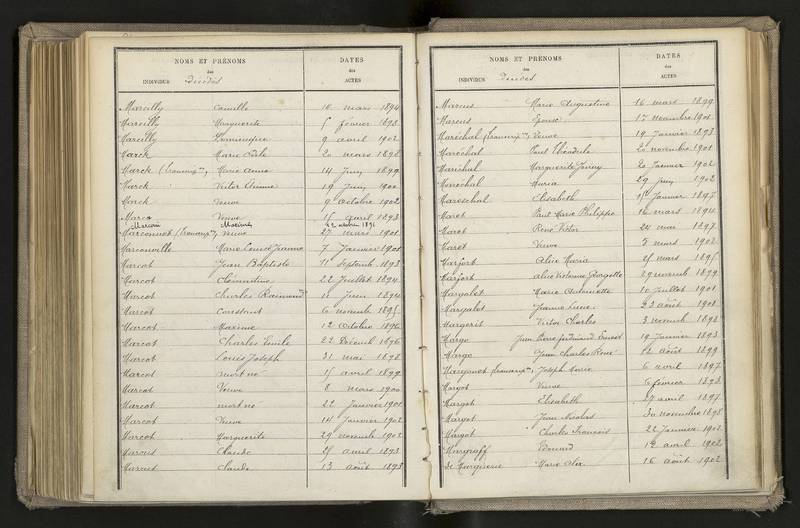 NOMS ET PRÉNOMS
des
INDIVIDUS décédés
DATES
des
ACTES
Marcilly Camille 10 mars 1894
Marcilly Marguerite février 1898
Marcilly 9 avril 1902
Marck Marie 20 mars 1898
Marck Marie Anne 14 juin 1899
Marck Victor 19 juin 1900
Marck Veuve 9 octobre 1902
Marco Veuve avril 1898
Maxime 12 octobre 1896
Marconnot Veuve 27 mars 1901
Marconville Marie Louise Jeanne 7 Janvier 1901
Marcot Jean Baptiste 11 Septemb. 1893
Marcot Clémentine 22 Juillet 1894
Marcot Charles Raimond 11 Juin 1894
Marcot Constant 6 novemb. 1895
Marcot Maxime 12 Octobre 1896
Marcot Charles Emile 22 Décemb. 1896
Marcot Louis Joseph 31 mai 1898
Marcot mort né avril 1899
Marcot Veuve 8 mars 1900
Marcot mort né 22 Janvier 1901
Marcot Veuve 14 Janvier 1902
Marcot Marguerite 29 novemb. 1902
Marcus Claude 25 avril 1893
Marcus Claude 13 août 1893
NOMS ET PRÉNOMS
des
INDIVIDUS décédés
DATES
des
ACTES
Marcus Marie Augustine 16 mars 1899
Marcus Epouse 17 novembre 1901
Maréchal Veuve 19 Janvier 1893
Maréchal Paul Théodule 20 novembre 1901
Maréchal Marguerite 20 Janvier 1902
Maréchal Maria 29 juin 1902
Mareschal Elisabeth Janvier 1897
Maret Paul Marie Philippe 14 mars 1894
Maret René Victor 24 mai 1897
Maret Veuve 5 mars 1902
Marfort Alice Maria mars 1895
Marfort Alice Victorine Georgette 29 novemb. 1899
Margalet Marie Antoinette 10 Juillet 1901
Margalet Jeanne Lucie 23 août 1901
Margerit Victor Charles 3 novemb. 1898
Margo Jean Pierre Ferdinand Ernest 19 Janvier 1893
Margo Jean Charles René 12 août 1899
Joseph Marie 6 avril 1897
Margot Veuve 5 février 1893
Margot Elisabeth 27 avril 1897
Margot Jean Nicolas 30 novembre 1898
Margot Charles François 22 Janvier 1902
Margraff Edouard 12 avril 1902
de Marguerie Marie 16 août 1902